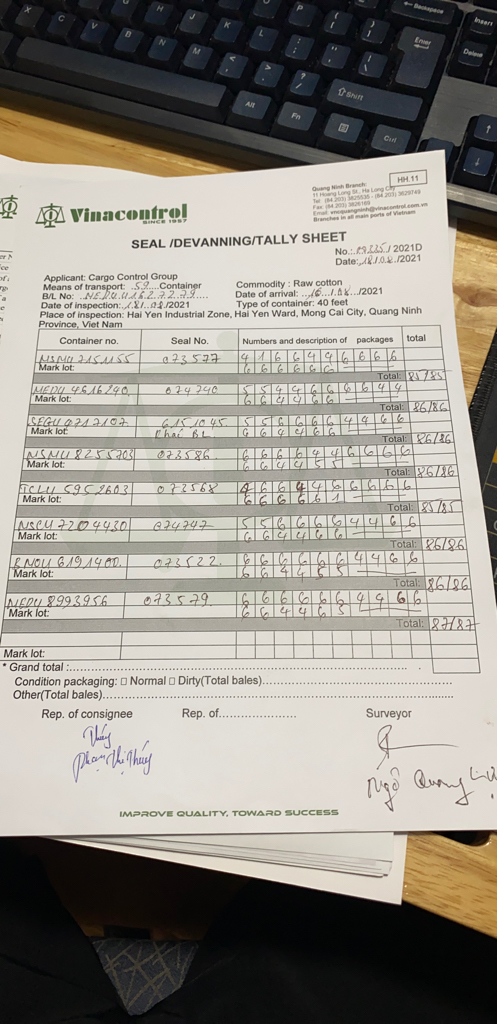 Backspace
Insert
Enter
Delete
Shift
Alt
Fn
Ctrl
HH.11
Quang Ninh Branch:
11 Hoang Long St., Ha Long City
Tel: (84.203) 3825535 - (84.203) 3629749
Fax: (84.203) 3826189
Email: vncquangninh@vinacontrol.com.vn
Branches in all main ports of Vietnam
Vinacontrol
SINCE 1957
SEAL /DEVANNING/TALLY SHEET
No.: / 2021D
Date: 18/08/2021
Applicant: Cargo Control Group
Means of transport: 59 Container
Commodity : Raw cotton
B/L No: MEDUU1627279
Date of arrival: 16/08/2021
Date of inspection: 18/08/2021
Type of container: 40 feet
Place of inspection: Hai Yen Industrial Zone, Hai Yen Ward, Mong Cai City, Quang Ninh
Province, Viet Nam
Container no. Seal No. Numbers and description of packages total
MSMU7151155 073577 4 1 6 6 4 4 6 6 6 6
Mark lot: 6 6 6 6 6 6
Total: 85/85
MEDU 4616240 074740 5 5 4 4 6 6 6 6 4 4
Mark lot: 6 6 4 4 6 6
Total: 86/86
SEGU 6151045 5 5 6 6 6 6 4 4 6 6
Mark lot: Phai BL 6 6 4 4 6 6
Total: 86/86
MSMU8255703 073586 6 6 6 6 4 4 6 6 6 6
Mark lot: 6 6 4 4 5 5
Total: 86/86
TCLU 5952603 073568 4 6 6 4 4 6 6 6 6 6
Mark lot: 6 6 6 6 6 1
Total: 85/85
MSCU 7204430 074747 5 5 6 6 6 6 4 4 6 6
Mark lot: 6 6 4 4 6 6
Total: 86/86
6191400 073522 6 6 6 6 6 6 4 4 6 6
Mark lot: 6 6 4 4 5 5
Total: 86/86
MEDU 8993956 073579 6 6 6 6 6 6 4 4 6 6
Mark lot: 6 6 4 4 6 5
Total: 87/87
Mark lot:
* Grand total :
Condition packaging: □ Normal □ Dirty(Total bales)
Other(Total bales)
Rep. of consignee Rep. of Surveyor
Thúy
Phạm Thị Thúy
Ngô Quang
IMPROVE QUALITY, TOWARD SUCCESS